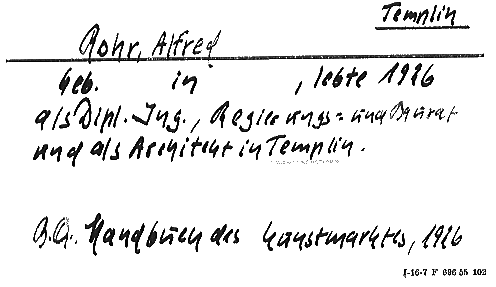 Templin
Rohr, Alfred
Geb. in , lebte 1926
als Dipl. Ing., Regierungs- und Baurat
und als Architekt in Templin.
Handbuch des Kunstmarktes, 1926
I-16-7 F 696 55 102